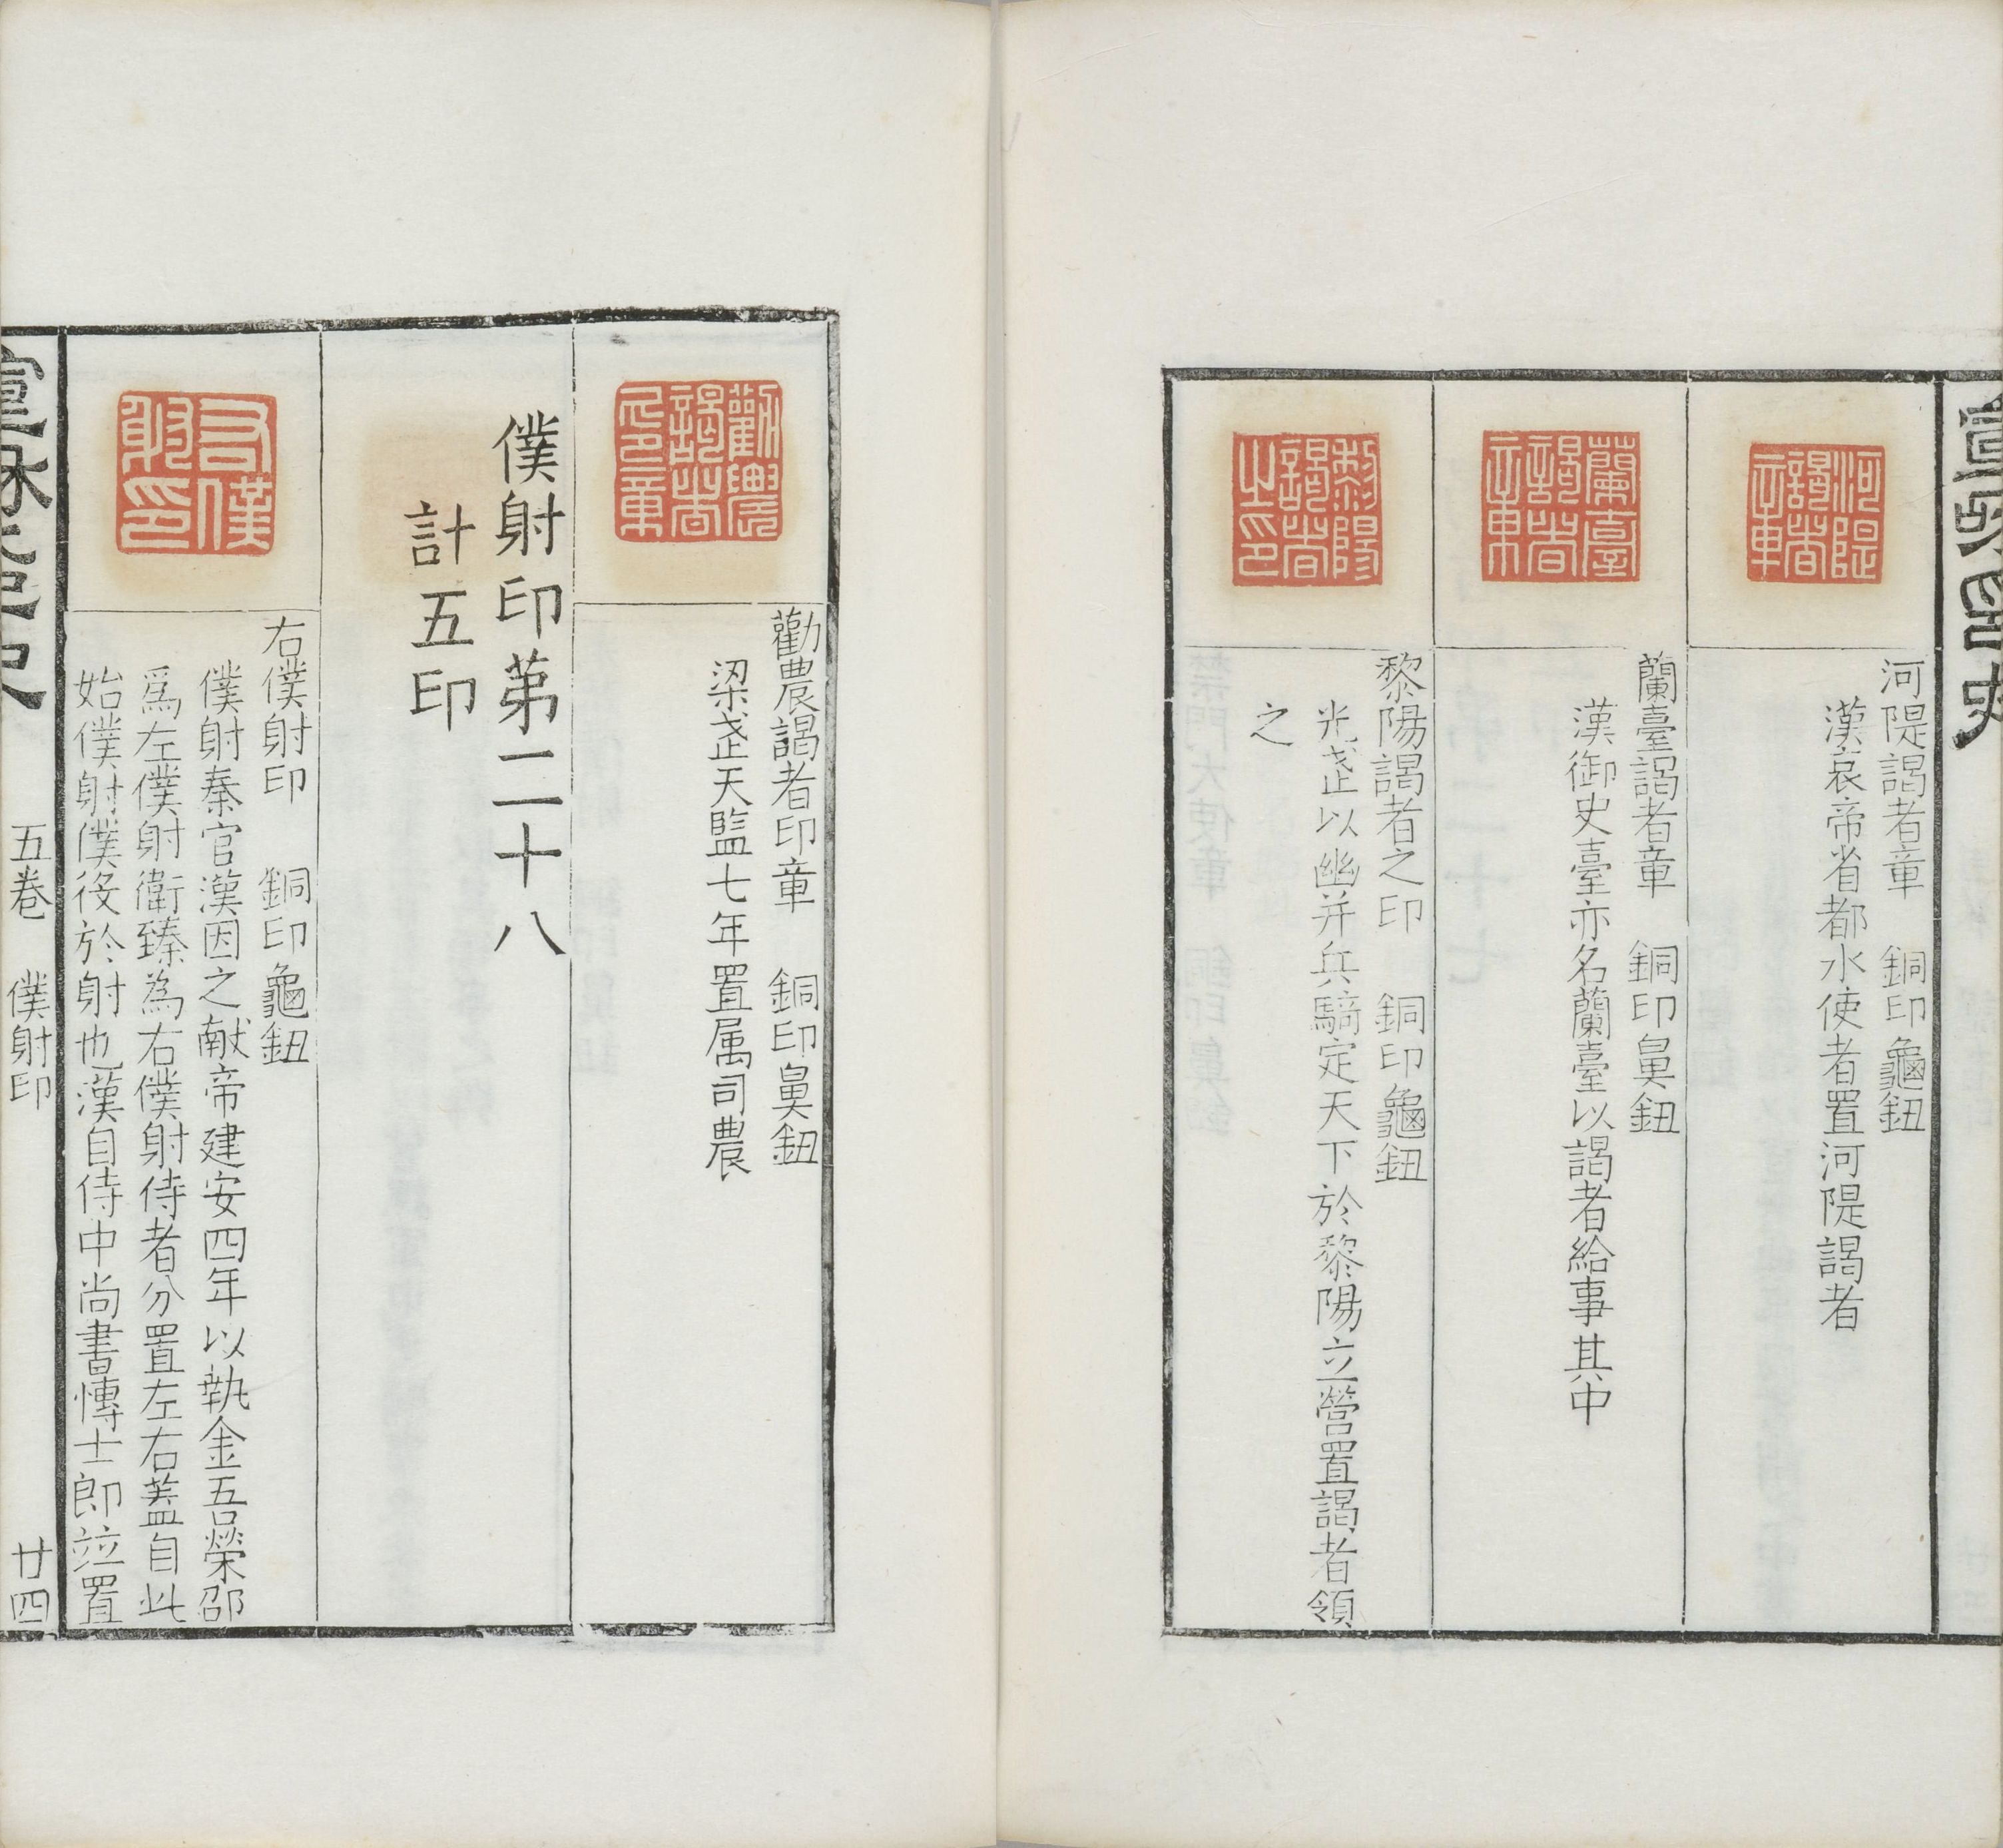 河隄謁者章
河隄謁者章　銅印龜鈕
漢哀帝省都水使者置河隄謁者
蘭臺謁者章
蘭臺謁者章　銅印鼻鈕
漢御史臺亦名蘭臺以謁者給事其中
黎陽謁者之印
黎陽謁者之印　銅印龜鈕
光武以幽并兵騎定天下於黎陽立營置謁者領
之
勸農謁者印章
勸農謁者印章　銅印鼻鈕
梁武天監七年置属司農
僕射印苐二十八
計五印
右僕射印
右僕射印　銅印龜鈕
僕射秦官漢因之献帝建安四年以執金吾榮邵
爲左僕射衛臻為右僕射侍者分置左右蓋自此
始僕射僕役於射也漢自侍中尚書博士郎竝置
五卷　僕射印　廿四